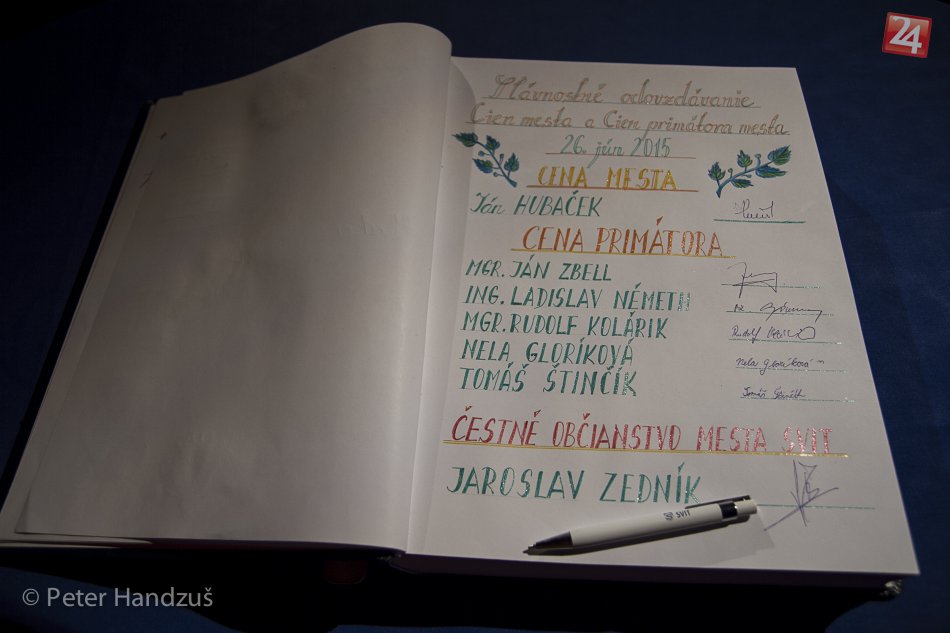 24
Slávnostné odovzdávanie
Cien mesta a Cien primátora mesta
26. jún 2015
CENA MESTA
Ján HUBAČEK
CENA PRIMÁTORA
MGR. JÁN ZBELL
ING. LADISLAV NÉMETH
MGR. RUDOLF KOLÁRIK
Rudolf
NELA GLORÍKOVÁ
Nela Gloríková
TOMÁŠ ŠTINČÍK
Tomáš Štinčík
ČESTNÉ OBČIANSTVO MESTA SVIT
JAROSLAV ZEDNÍK
SVIT
© Peter Handzuš